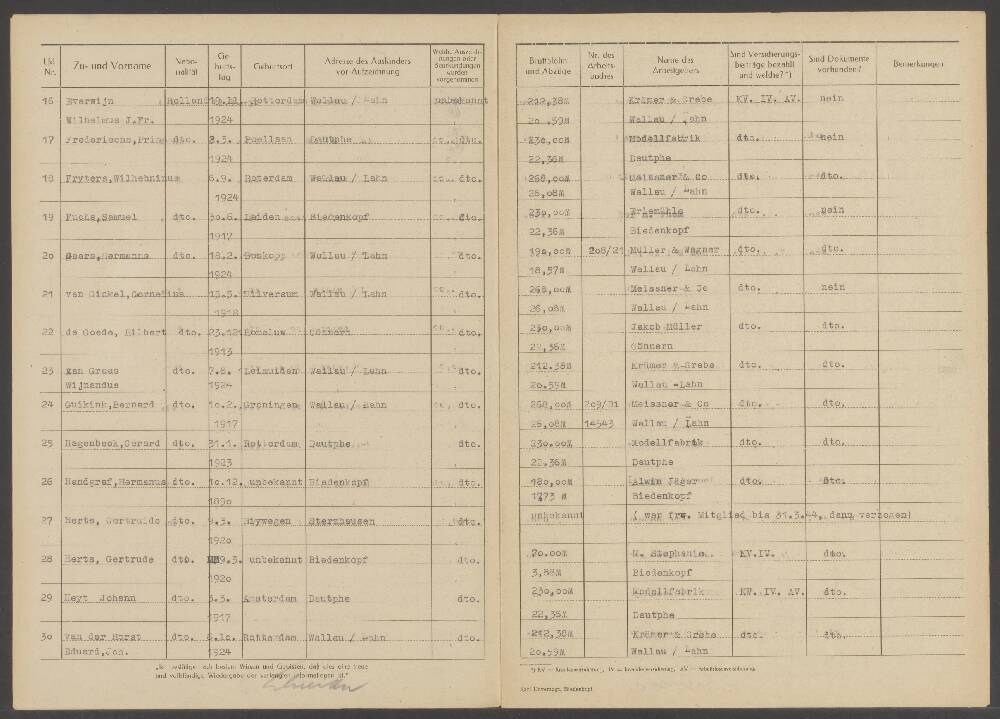 Lfd. Nr. Zu- und Vorname Natio-nalität Ge-burts-tag Geburtsort Adresse des Ausländers vor Aufzeichnung wurden vorgenommen
16 Everwijn Holland 19. Rotterdam Wallau / Lahn unbekannt
Wilhelmus J.Fr. 1924
17 dto. 2.3. Dautphe dto.
1924
18 6.9. Roterdam Wallau / Lahn dto.
1924
19 Fuchs,Samuel dto. 30.6. Leiden Biedenkopf dto.
1917
20 dto. 18.2. Boskopp Wallau / Lahn dto.
1924
21 van Gickel,Cornelius dto. Wallau / Lahn dto.
1918
22 de Goede, dto. 23.12. Gönnern dto.
1913
23 dto. 7.8. Leimuiden Wallau / Lahn dto.
Wijnandus 1924
24 Guikink,Bernard dto. 10.2. Groningen Wallau / Lahn dto.
1917
25 Hagenbeek,Gerard dto. 31.1. Rotterdam Dautphe dto.
1923
26 Handgraf,Hermanus dto. 10.12. unbekannt Biedenkopf dto.
1890
27 Herts, Gertruide dto. 9.3. Nijwegen Sterzhausen dto.
1920
28 Herts, Gertrude dto. 9.3. unbekannt Biedenkopf dto.
1920
29 Heyt Johann dto. Amsterdam Dautphe dto.
1917
30 Van der Horst dto. 6.10. Rotterdam Wallau / Lahn dto.
Eduard,Joh. 1924
„Ich bestätige nach bestem Wissen und Gewissen, daß dies eine treue
und vollständige Wiedergabe der verlangten Informationen ist."
Bruttolohn und Abzüge Nr. des Arbeits-buches Name des Arbeitgebers Sind Versicherungs-beiträge bezahlt und welche?*) Sind Dokumente vorhanden? Bemerkungen
212,38M Krämer & Grebe KV. IV. AV. nein
20.59M Wallau / Lahn
230,00M Modellfabrik dto. nein
22,36M Dautphe
268,00M Meissner & Co dto. dto.
26,08M Wallau / Lahn
230,00M dto. nein
22,36M Biedenkopf
190,00M 208/21 Müller & Wagner dto. dto.
18,57M Wallau / Lahn
268,00M Meissner & Co dto. nein
26,08M Wallau / Lahn
230,00M Jakob Müller dto. dto.
22,36M Gönnern
212.38M Krämer & Grebe dto. dto.
20.59M Wallau -Lahn
268,00M 209/21 Meissner & Co dto. dto.
26,08M 14543 Wallau / Lahn
230.00M Modellfabrik dto. dto.
22,36M Dautphe
180,00M Alwin Jäger dto. dto.
1773 M Biedenkopf
unbekannt ( war frw. Mitglied bis 31.3.44, dann verzogen)
70.00M M. Stephanie KV.IV. dto.
3,88M Biedenkopf
230,00M Modellfabrik KV. IV. AV dto.
22,36M Dautphe
212,38M Krämer & Grebe dto. dto.
20.59M Wallau / Lahn
*) KV = Krankenversicherung, IV = Invalidenversicherung, AV = Arbeitslosenversicherung
Karl Unverzagt, Biedenkopf